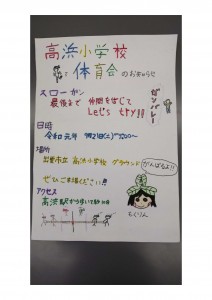 高浜小学校
体育会のお知らせ
スローガン
最後まで 仲間を信じて
Let's try!!
ガンバレー
日時
令和元年 9月21日(土)
場所
出雲市立 高浜小学校 グラウンド
がんばるよ!!
ぜひご来場ください!!
アクセス
高浜駅から歩いて